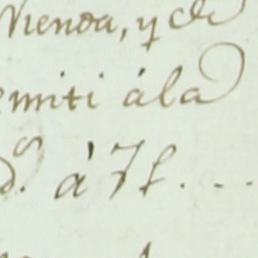 vienda, y de
emiti á la
d.º á 7 f. . .